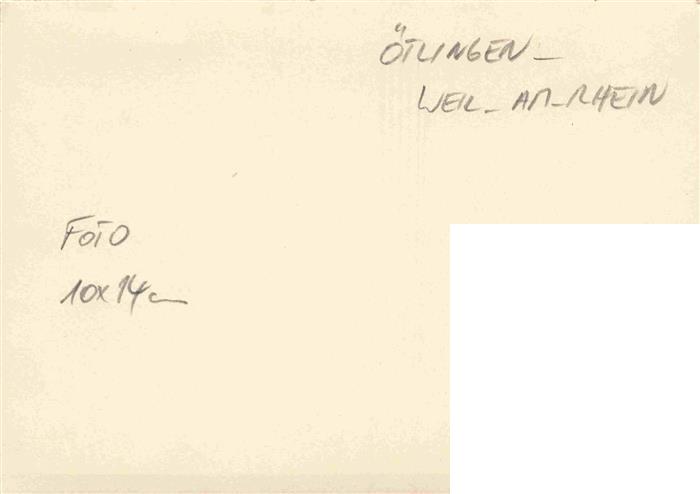 ÖTLINGEN_
WEIL_AM_RHEIN
FOTO
10x14cm